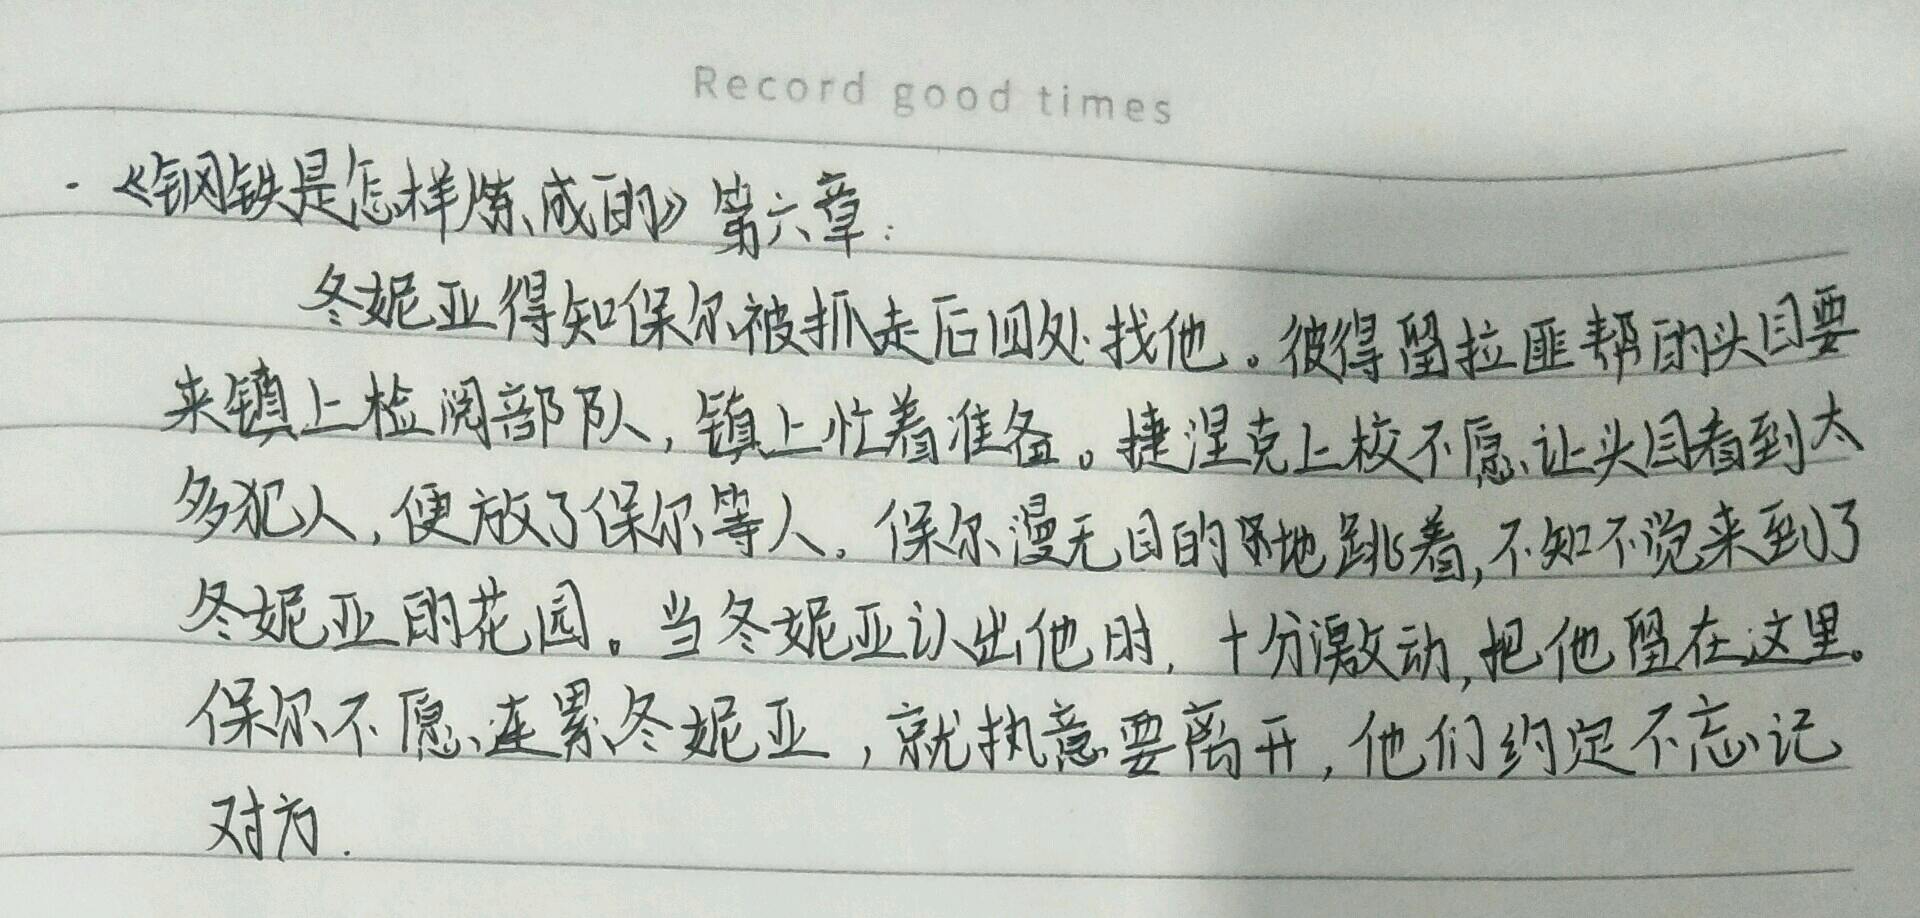 Record good times
·《钢铁是怎样炼成的》第六章:
冬妮亚得知保尔被抓走后四处找他。彼得留拉匪帮的头目要
来镇上检阅部队,镇上忙着准备。捷涅克上校不愿让头目看到太
多犯人,便放了保尔等人。保尔漫无目的地跳着,不知不觉来到了
冬妮亚的花园。当冬妮亚认出他时,十分激动,把他留在这里。
保尔不愿连累冬妮亚,就执意要离开,他们约定不忘记
对方.